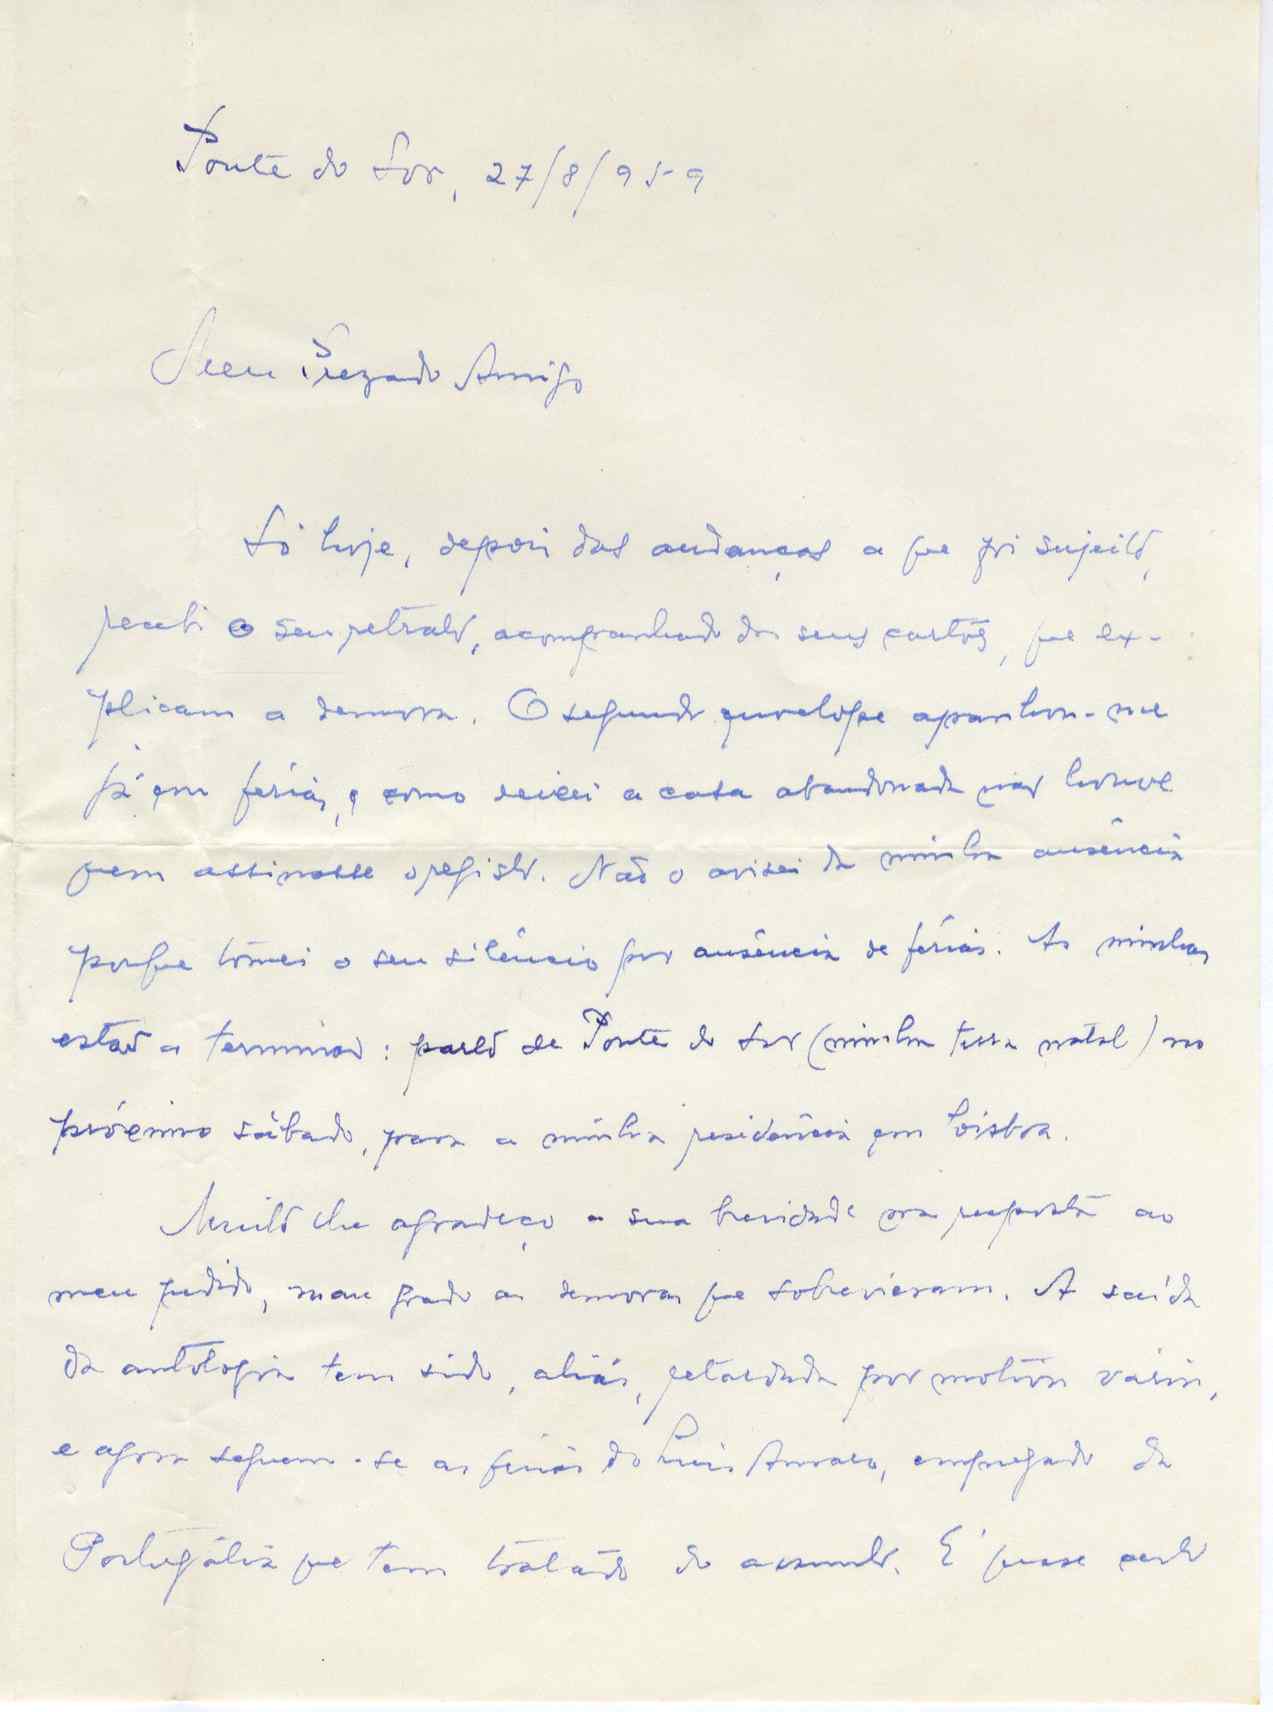 Ponte do Sor, 27/8/959
Meu Prezado Amigo
Só hoje, depois das andanças a que fui sujeito,
recebi o seu retrato, acompanhado dos seus cartões, que ex-
plicam a demora. O segundo envelope apanhou-me
já em férias, e como deixei a casa abandonada não houve
quem assinasse o registo. Não o avisei da minha ausência
porque tomei o seu silêncio por ausência de férias. As minhas
estão a terminar: parto de Ponte do Sor (minha terra natal) no
próximo sábado, para a minha residência em Lisboa.
Muito lhe agradeço a sua brevidade na resposta ao
meu pedido, mau grado as demoras que sobrevieram. A saída
da antologia tem sido, aliás, retardada por motivos vários,
e agora seguem-se as férias do Luís Amaro, empregado da
Portugália que tem tratado do assunto. É quase certo